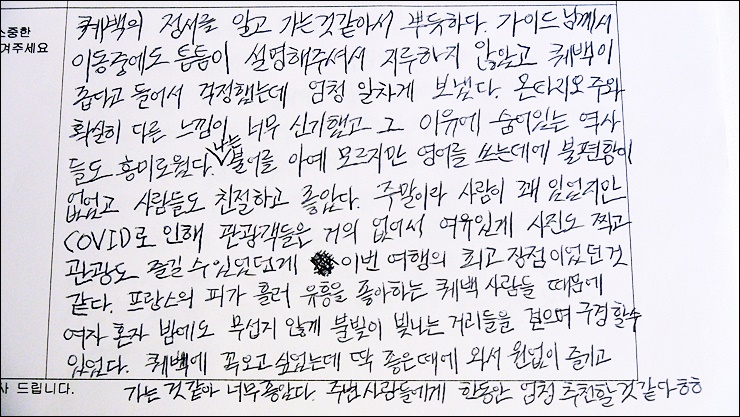 소중한
겨주세요
퀘백의 정서를 알고 가는것같아서 뿌듯하다. 가이드님께서
이동중에도 틈틈이 설명해주셔서 지루하지 않았고 퀘백이
좁다고 들어서 걱정했는데 엄청 알차게 보냈다. 온타리오 주와
확실히 다른 느낌이 너무 신기했고 그 이유에 숨어있는 역사
들도 흥미로웠다. 나는 불어를 아예 모르지만 영어를 쓰는데에 불편함이
없었고 사람들도 친절하고 좋았다. 주말이라 사람이 꽤 있었지만
COVID로 인해 관광객들은 거의 없어서 여유있게 사진도 찍고
관광도 즐길 수 있었던게 이번 여행의 최고 장점이었던것
같다. 프랑스의 피가 흘러 유흥을 좋아하는 퀘백 사람들 때문에
여자 혼자 밤에도 무섭지 않게 불빛이 빛나는 거리들을 걸으며 구경할수
있었다. 퀘백에 꼭오고싶었는데 딱 좋은때에 와서 원없이 즐기고
사 드립니다.
가는것같아 너무좋았다. 주변사람들에게 한동안 엄청 추천할것같다ㅎㅎ